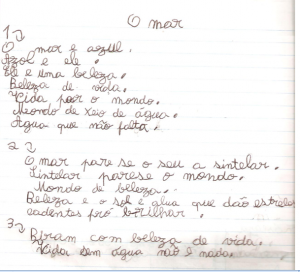 O mar
1
O mar é azul.
Azol e ele.
Ele e uma beleza.
Beleza de vida.
Vida poor o mondo.
Meondo de xeio de água.
Agua que não falta.
2
O mar pare se o seu a sintelar.
Sintelar parese o mondo.
Mondo de beleza.
Beleza e o sol é glua que dão estrelas
cadentes pró brilhar.
3
Biram com beleza de vida.
Vida sem água não é nada.